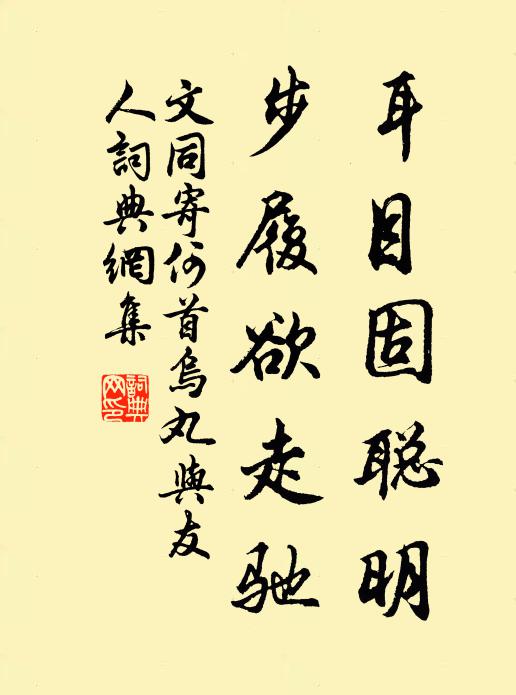 耳目固聪明
步履欲走驰
文同寄何首烏丸與友
人詞典網集
詞典
网印